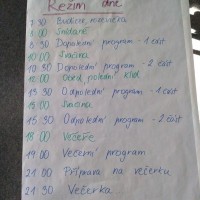 Režim dne
7 30 Budíček, rozcvička
8 00 Snídaně
8 30 Dopolední program - 1 část
10 00 Svačina
10 30 Dopolední program - 2 část
12 00 Oběd, polední klid
13 30 Odpolední program - 1 část
15 00 Svačina
15 30 Odpolední program - 2 část
18 00 Večeře
19 00 Večerní program
21 00 Příprava na večerku
21 30 Večerka